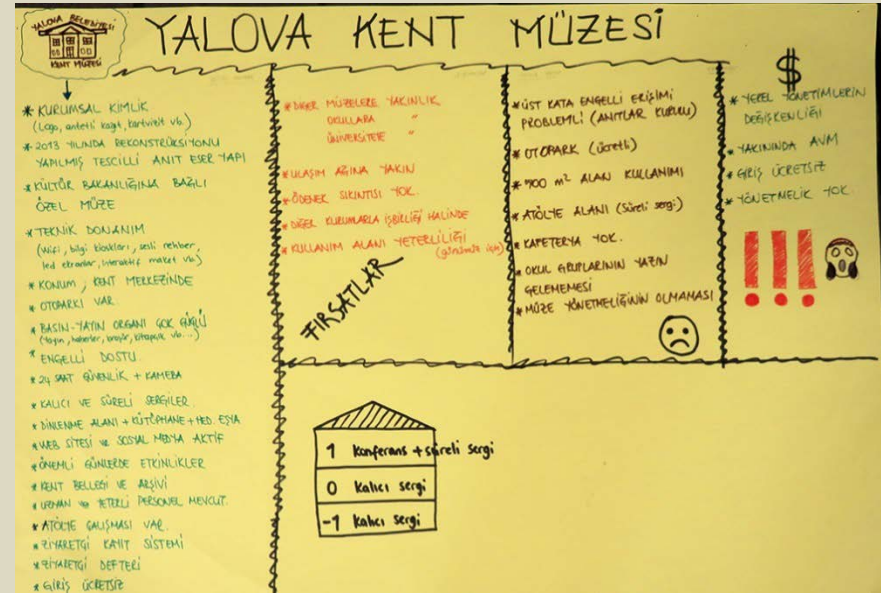 YALOVA BELEDİYESİ
KENT MÜZESİ
YALOVA KENT MÜZESİ
* KURUMSAL KİMLİK
(Logo, antetli kağıt, kartvizit vb.)
* 2013 YILINDA REKONSTRÜKSİYONU
YAPILMIŞ TESCİLLİ ANIT ESER YAPI
* KÜLTÜR BAKANLIĞINA BAĞLI
ÖZEL MÜZE
* TEKNİK DONANIM
(Wifi, bilgi kioskları, sesli rehber,
led ekranlar, interaktif maket vb.)
* KONUM, KENT MERKEZİNDE
* OTOPARKI VAR.
* BASIN-YAYIN ORGANI ÇOK GÜÇLÜ
(Yayın, haberler, broşür, kitapçık vb...)
* ENGELLİ DOSTU
* 24 SAAT GÜVENLİK + KAMERA
* KALICI VE SÜRELİ SERGİLER
* DİNLENME ALANI + KÜTÜPHANE + HED. EŞYA
* WEB SİTESİ ve SOSYAL MEDYA AKTİF
* ÖNEMLİ GÜNLERDE ETKİNLİKLER
* KENT BELLEĞİ VE ARŞİVİ
* UZMAN ve YETERLİ PERSONEL MEVCUT.
* ATÖLYE ÇALIŞMASI VAR.
* ZİYARETÇİ KAYIT SİSTEMİ
* ZİYARETÇİ DEFTERİ
* GİRİŞ ÜCRETSİZ
* DİĞER MÜZELERE YAKINLIK
OKULLARA "
ÜNİVERSİTEYE "
* ULAŞIM AĞINA YAKIN
* ÖDENEK SIKINTISI YOK.
* DİĞER KURUMLARLA İŞBİRLİĞİ HALİNDE
* KULLANIM ALANI YETERLİLİĞİ
(günümüz için)
FIRSATLAR
* ÜST KATA ENGELLİ ERİŞİMİ
PROBLEMLİ (ANITLAR KURULU)
* OTOPARK (ücretli)
* 700 m² ALAN KULLANIMI
* ATÖLYE ALANI (Süreli sergi)
* KAFETERYA YOK.
* OKUL GRUPLARININ YAZIN
GELEMEMESİ
* MÜZE YÖNETMELİĞİNİN OLMAMASI
$
* YEREL YÖNETİMLERİN
DEĞİŞKENLİĞİ
* YAKININDA AVM
* GİRİŞ ÜCRETSİZ
* YÖNETMELİK YOK
!!!
1 Konferans + süreli sergi
0 Kalıcı sergi
-1 Kalıcı sergi